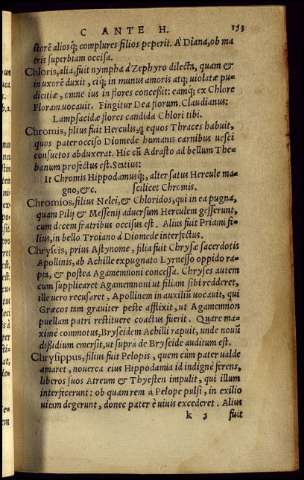 C ANTE H. 153
storē aliosq; complures filios peperit. A' Diana, ob ma
tris superbiam occisa.
Chloris, alia, fuit nympha à Zephyro dilecta, quam &
in uxorē duxit, eiq; in munus amoris atq; violatæ pu-
dicitiæ, omne ius in flores concessit: eamq; ex Chlore
Floram uocauit. Fingitur Dea florum. Claudianus:
Lampsacidæ flores candida Chlori tibi.
Chromis, filius fuit Herculis, q equos Thraces habuit,
quos pater occiso Diomede humanis carnibus uesci
consuetos abduxerat. Hic cū Adrasto ad bellum The-
banum profectus est. Statius:
It Chromis Hippodamusq;, alter satus Hercule ma-
gno, &c. scilicet Chromis.
Chromios, filius Nelei, & Chloridos, qui in ea pugna,
quam Pilij & Messenij aduersum Herculem gesserunt,
cum decem fratribus occisus est. Alius fuit Priami fi-
lius, in bello Troiano à Diomede interfectus.
Chryseis, prius Astynome, filia fuit Chrysæ sacerdotis
Apollinis, ab Achille expugnato Lyrnesso oppido ra-
pta, & postea Agamemnoni concessa. Chryses autem
cum supplicaret Agamemnoni ut filiam sibi redderet,
ille uero recusaret, Apollinem in auxiliū uocauit, qui
Græcos tam grauiter peste afflixit, ut Agamemnon
puellam patri restituere coactus fuerit. Quare ma-
xime commotus, Bryseidem Achilli rapuit, unde nouū
dissidium emersit, ut supra de Bryseide auditum est.
Chrysippus, filius fuit Pelopis, quem cum pater ualde
amaret, nouerca eius Hippodamia id indignè ferens,
liberos suos Atreum & Thyesten impulit, qui illum
interfecerunt: ob quam rem à Pelope pulsi, in exilio
uitam degerunt, donec pater è uiuis excederet. Alius
k 3 fuit